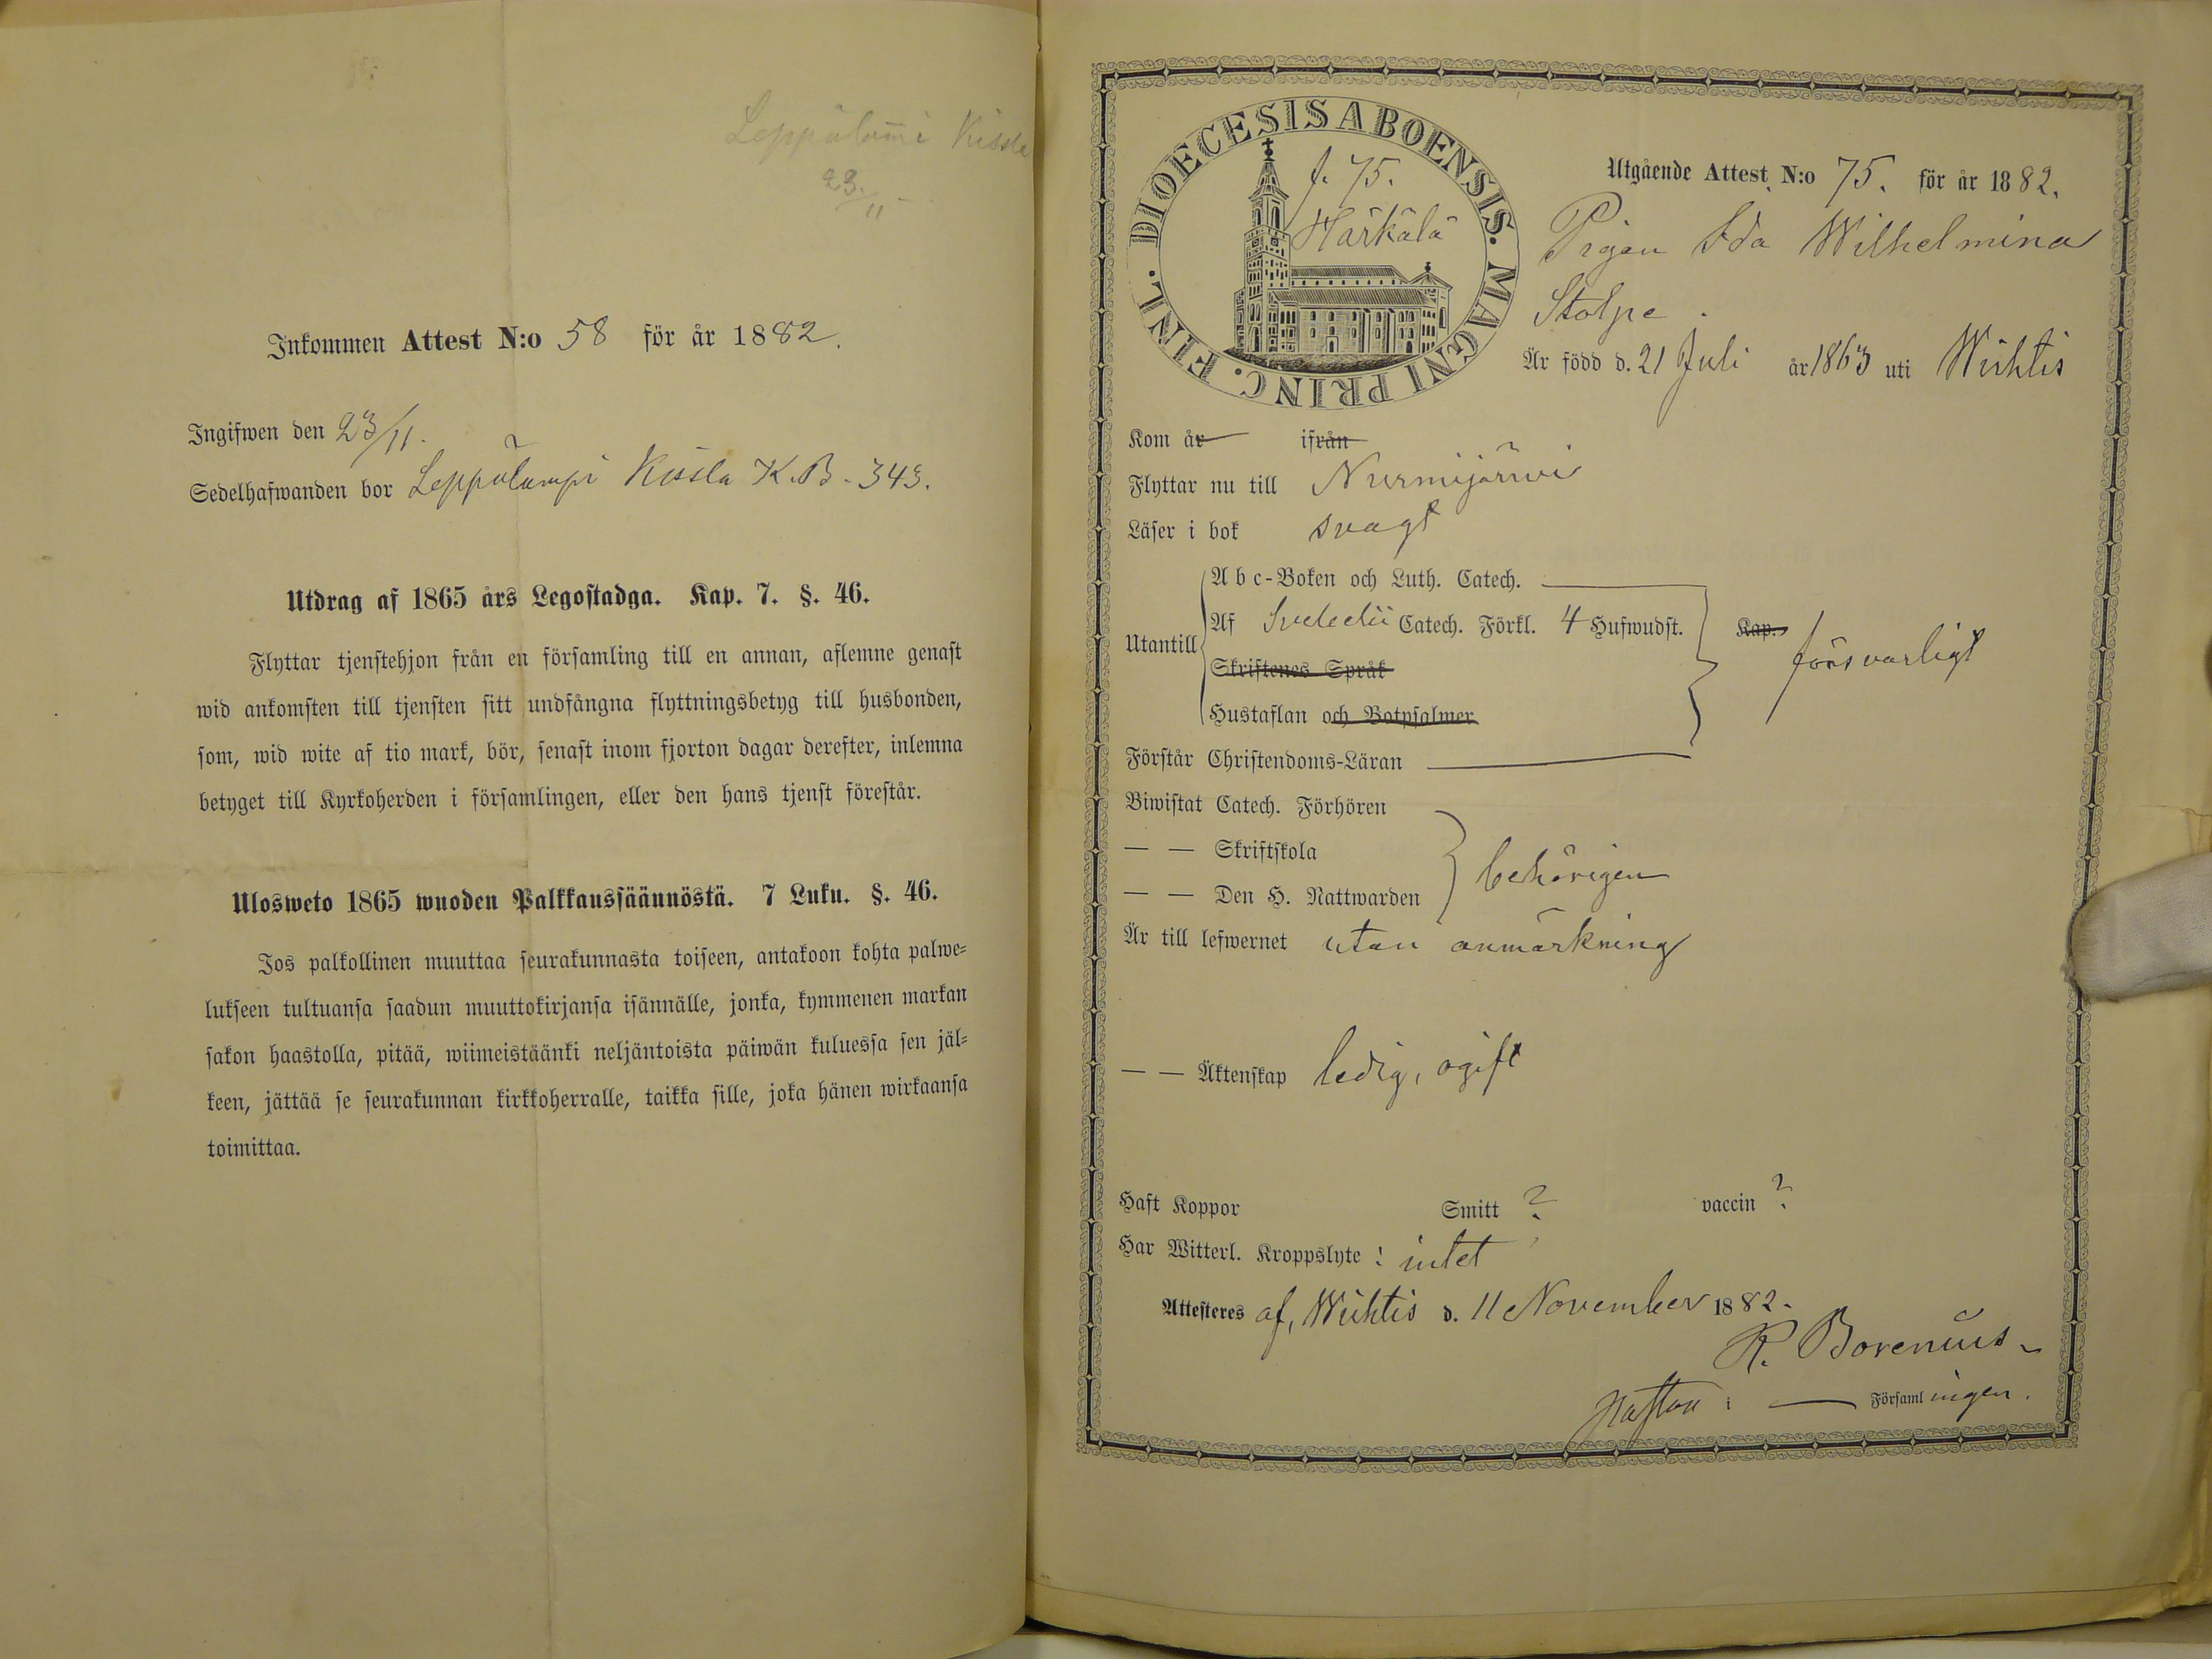 Leppälampi Kissla
23/11
Inkommen Attest N:o 58 för år 1882.
Ingifwen den 23/11.
Sedelhafwanden bor Leppälampi Kissla K.B. 343.
Utdrag af 1865 års Legostadga. Kap. 7. §. 46.
Flyttar tjenstehjon från en församling till en annan, aflemne genast
wid ankomsten till tjensten sitt undfångna flyttningsbetyg till husbonden,
som, wid wite af tio mark, bör, senast inom fjorton dagar derefter, inlemna
betyget till Kyrkoherden i församlingen, eller den hans tjenst förestår.
Ulosweto 1865 wuoden Palkkaussäännöstä. 7 Luku. §. 46.
Jos palkollinen muuttaa seurakunnasta toiseen, antakoon kohta palwe=
lukseen tultuansa saadun muuttokirjansa isännälle, jonka, kymmenen markan
sakon haastolla, pitää, wiimeistäänki neljäntoista päiwän kuluessa sen jäl=
keen, jättää se seurakunnan kirkkoherralle, taikka sille, joka hänen wirkaansa
toimittaa.
DIOECESIS ABOENSIS. MAGNI PRINC. FINL.
f. 75.
Härkälä
Utgående Attest N:o 75. för år 1882.
Pigan Ida Wilhelmina
Stolpe.
Är född d. 21 Juli år 1863 uti Wichtis
Kom år ifrån
Flyttar nu till Nurmijärwi
Läser i bok svagt
Utantill
A b c-Boken och Luth. Catech.
Af Svebelii Catech. Förkl. 4 Hufwudst. Kap.
försvarligt
Skriftenes Språk
Hustaflan och Botpsalmer
Förstår Christendoms-Läran
Biwistat Catech. Förhören
— — Skriftskola
behörigen
— — Den H. Nattwarden
Är till lefwernet utan anmärkning
— — Äktenskap ledig, ogift
Haft Koppor Smitt ? vaccin ?
Har Witterl. Kroppslyte : intet
Attesteres af, Wichtis d. 11 November 1882.
K. Borenius
Församlingen.